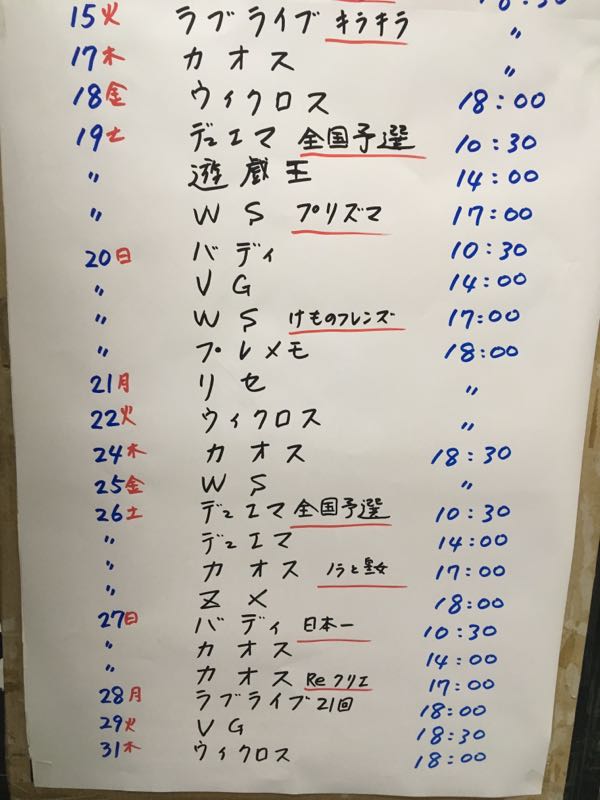 18:30
15火 ラブライブ キラキラ 〃
17木 カオス 〃
18金 ウィクロス 18:00
19土 デュエマ 全国予選 10:30
〃 遊戯王 14:00
〃 WS プリズマ 17:00
20日 バディ 10:30
〃 VG 14:00
〃 WS けものフレンズ 17:00
〃 プレメモ 18:00
21月 リセ 〃
22火 ウィクロス 〃
24木 カオス 18:30
25金 WS 〃
26土 デュエマ 全国予選 10:30
〃 デュエマ 14:00
〃 カオス ノラと皇女 17:00
〃 ZX 18:00
27日 バディ 日本一 10:30
〃 カオス 14:00
〃 カオス Reクリエ 17:00
28月 ラブライブ21回 18:00
29火 VG 18:30
31木 ウィクロス 18:00